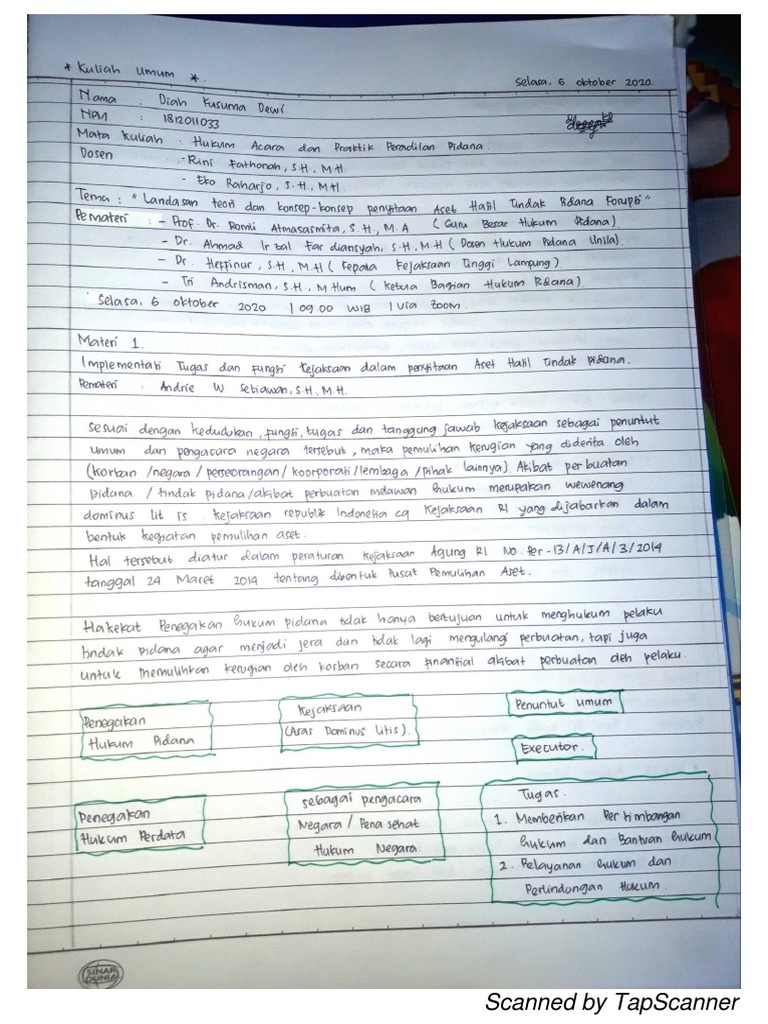 * Kuliah Umum *.
Selasa, 6 Oktober 2020.
Nama : Diah Kusuma Dewi
NPM : 1812011033
Mata Kuliah : Hukum Acara dan Praktik Peradilan Pidana.
Dosen : - Rini Fathonah, S.H, M.H.
- Eko Raharjo, S.H, MH
Tema : "Landasan teori dan konsep-konsep penyitaan Aset Hasil Tindak Pidana Korupsi"
Pemateri : - Prof. Dr. Romli Atmasasmita, S.H, M.A (Guru Besar Hukum Pidana).
- Dr. Ahmad Irzal Fardiansyah, S.H, M.H (Dosen Hukum Pidana Unila).
- Dr. Heffinur, S.H, M.H (Kepala Kejaksaan Tinggi Lampung)
- Tri Andrisman, S.H, M Hum (Ketua Bagian Hukum Pidana)
Selasa, 6 Oktober 2020 | 09.00 WIB | Via Zoom.
Materi 1.
Implementasi Tugas dan fungsi Kejaksaan dalam penyitaan Aset Hasil tindak pidana.
Pemateri : Andrie W Setiawan, S.H, M.H.
Sesuai dengan kedudukan, fungsi, tugas dan tanggung jawab kejaksaan sebagai penuntut
umum dan pengacara negara tersebut, maka pemulihan kerugian yang diderita oleh
(korban /negara / perseorangan / koorporasi /lembaga /pihak lainnya) Akibat perbuatan
pidana / tindak pidana /akibat perbuatan melawan hukum merupakan wewenang
dominus lit is kejaksaan republik Indonesia cq Kejaksaan RI yang dijabarkan dalam
bentuk kegiatan pemulihan aset.
Hal tersebut diatur dalam peraturan kejaksaan Agung RI No. Per-13/A/J/A/3/2014
tanggal 24 Maret 2014 tentang dibentuk Pusat Pemulihan Aset.
Hakekat Penegakan hukum pidana tidak hanya bertujuan untuk menghukum pelaku
tindak pidana agar menjadi jera dan tidak lagi mengulangi perbuatan, tapi juga
untuk memulihkan kerugian oleh korban secara finansial akibat perbuatan oleh pelaku.
Penegakan
Hukum Pidana
Kejaksaan
(Asas Dominus Litis).
Penuntut umum
Executor.
Penegakan
Hukum Perdata
sebagai pengacara
Negara / Penasehat
Hukum Negara.
Tugas.
1. Memberikan Pertimbangan
hukum dan Bantuan hukum
2. Pelayanan hukum dan
Perlindungan Hukum.
SINAR
DUNIA
Scanned by TapScanner